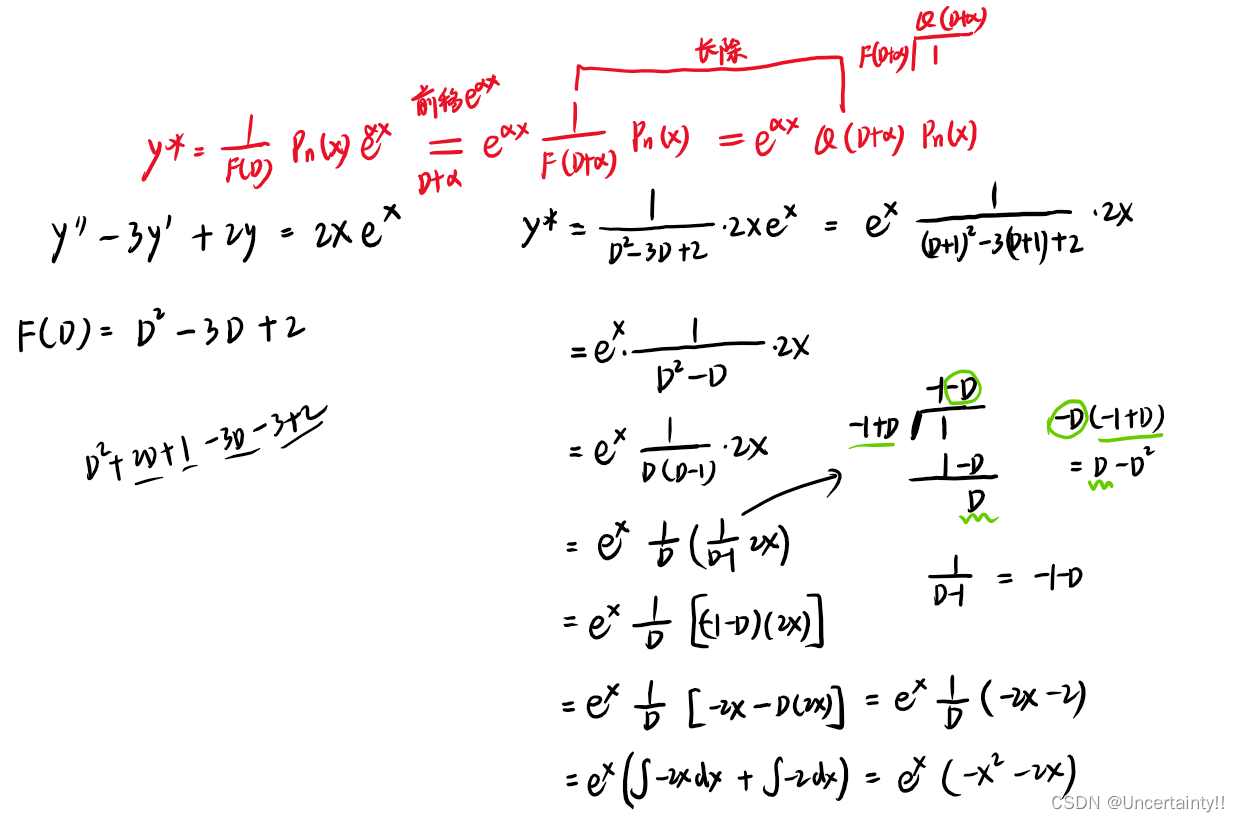 长除
F(D+α)⟌1 Q(D+α)
y* = 1/F(D) Pn(x) e^{αx} 前移e^{αx} = D+α e^{αx} 1/F(D+α) Pn(x) = e^{αx} Q(D+α) Pn(x)
y'' - 3y' + 2y = 2x e^x
F(D) = D² - 3D + 2
D² + 2D + 1 - 3D - 3 + 2
y* = 1/(D²-3D+2) ·2xe^x = e^x 1/((D+1)²-3(D+1)+2) ·2x
= e^x · 1/(D²-D) ·2x
= e^x 1/(D(D-1)) ·2x
= e^x 1/D (1/(D-1) 2x)
= e^x 1/D [(-1-D)(2x)]
= e^x 1/D [-2x - D(2x)] = e^x 1/D (-2x-2)
= e^x (∫-2xdx + ∫-2dx) = e^x (-x² - 2x)
-1-D
-1+D ⟌ 1
1-D
D
-D(-1+D)
= D - D²
1/(D-1) = -1-D
CSDN @Uncertainty!!